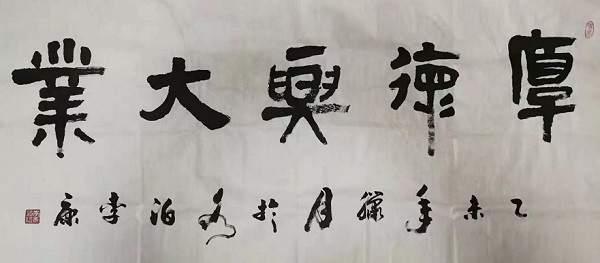 厚德興大業
乙未年臘月於水泊李康